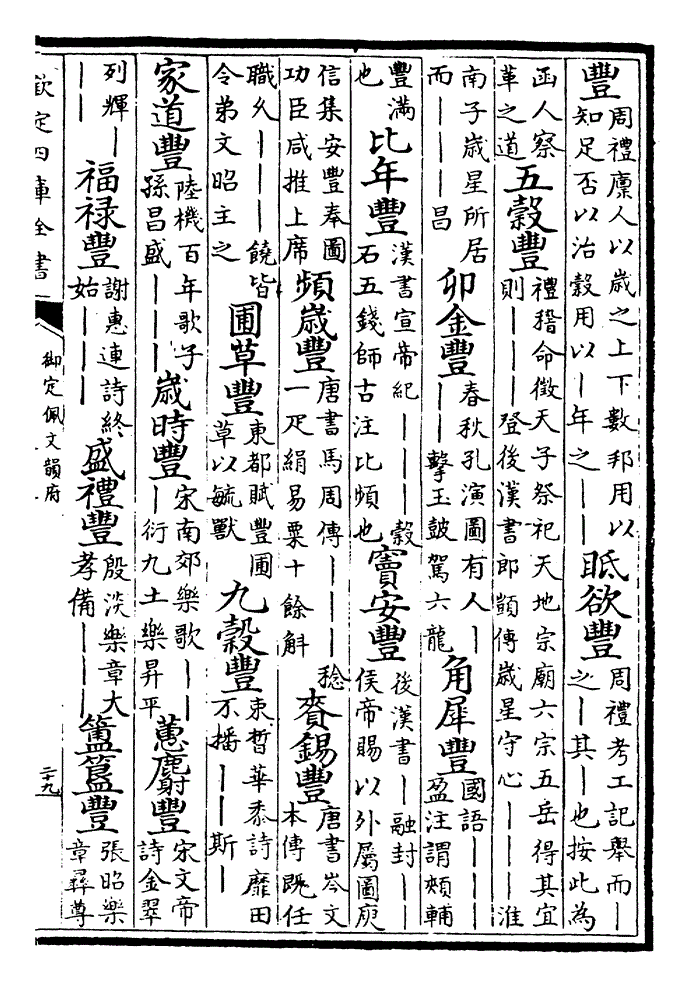 豐周禮廪人以歳之上下數邦用以知足否以治榖用以｜年之｜｜眡欲豐周禮考工記舉而｜之｜其｜也按此為
函人察革之道五榖豐禮稽命徵天子祭祀天地宗廟六宗五岳得其宜則｜｜｜登後漢書郎顗傳歳星守心｜｜｜淮
南子歳星所居而｜｜昌卯金豐春秋孔演圖有人｜｜｜擊玉皷駕六龍角犀豐國語｜｜｜盈注謂頰輔
豐滿也比年豐漢書宣帝紀｜｜｜榖石五錢師古注比頻也竇安豐後漢書｜融封｜｜侯帝賜以外屬圖庾
信集安豐奉圖功臣咸推上席頻歳豐唐書馬周傳｜｜｜稔一疋絹易粟十餘斛賚錫豐唐書岑文本傳既任
職乆｜｜｜饒皆令弟文昭主之圃草豐東都賦豐圃草以毓獸九榖豐束晳華黍詩靡田不播｜｜斯｜
家道豐陸機百年歌子孫昌盛｜｜｜歳時豐宋南郊樂歌｜｜｜衍九土樂昇平蕙麝豐宋文帝詩金翠
列輝｜｜｜福祿豐謝惠連詩終始｜｜｜盛禮豐殷淡樂章大孝備｜｜｜簠簋豐張昭樂章彛尊
欽定四庫全書
御定佩文韻府
二十九